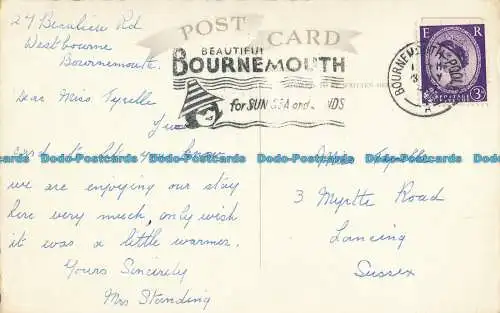 27 Beauliere Rd
Westbourne
Bournemouth.
POST CARD
BEAUTIFUL
BOURNEMOUTH
for SUN SEA and SANDS
BOURNEMOUTH-POOLE
A
E R
3D
Dear Miss Tyrelle
Just a
card to let you know
we are enjoying our stay
here very much, only wish
it was a little warmer.
Yours Sincerely
Mrs Standing
Miss Tyrelle
3 Myrtle Road
Lancing
Sussex
Dodo-Postcards.com Dodo-Postcards.com Dodo-Postcards.com Dodo-Postcards.com